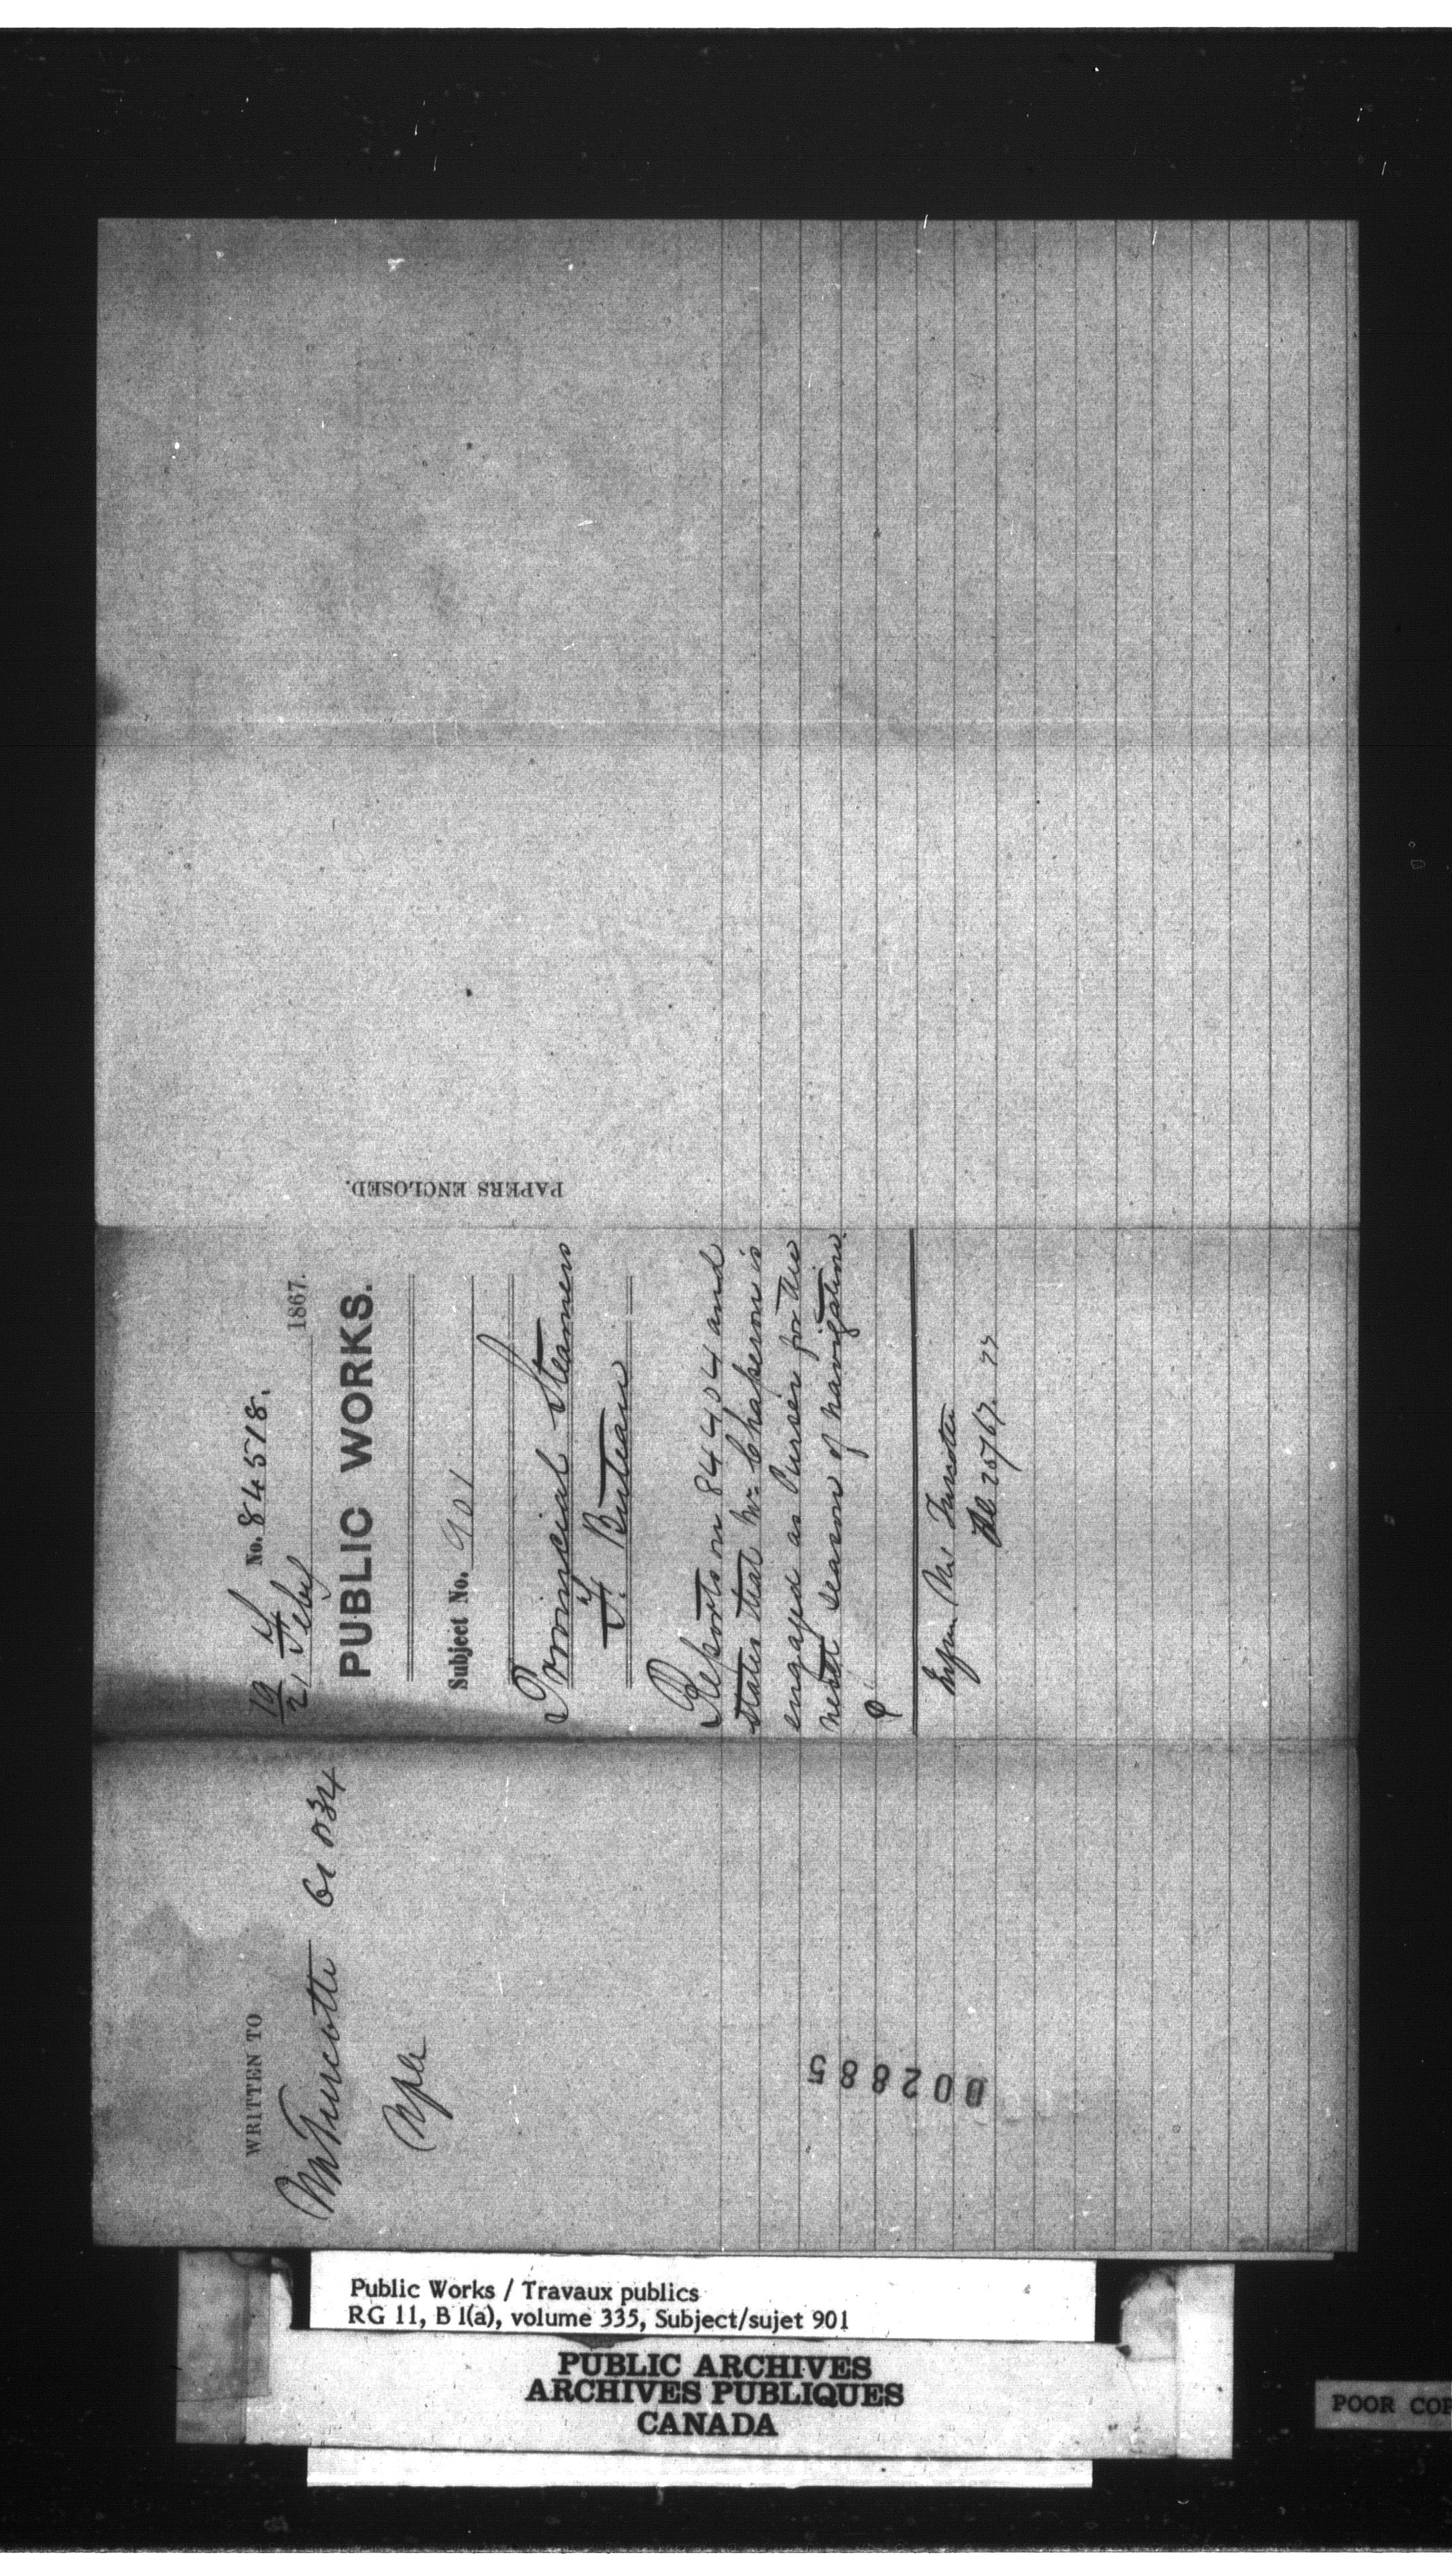 WRITTEN TO
Mr Turcotte 61 034
19/21 Feby No. 84518.
1867.
PUBLIC WORKS.
Subject No. 901
Provincial Steamers
F. Buteau
Reports on 84404 and
states that Mr Chaperon is
engaged as Purser for the
next season of navigation.
Mr. Turcotte
Fb 25/67.
PAPERS ENCLOSED.
002885
Public Works / Travaux publics
RG 11, B 1(a), volume 335, Subject/sujet 901
PUBLIC ARCHIVES
ARCHIVES PUBLIQUES
CANADA
POOR COP